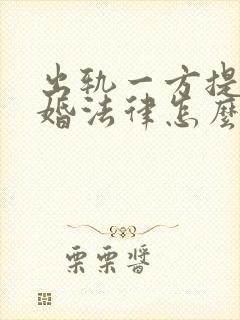 出轨一方提
婚法律怎麼
栗栗醬